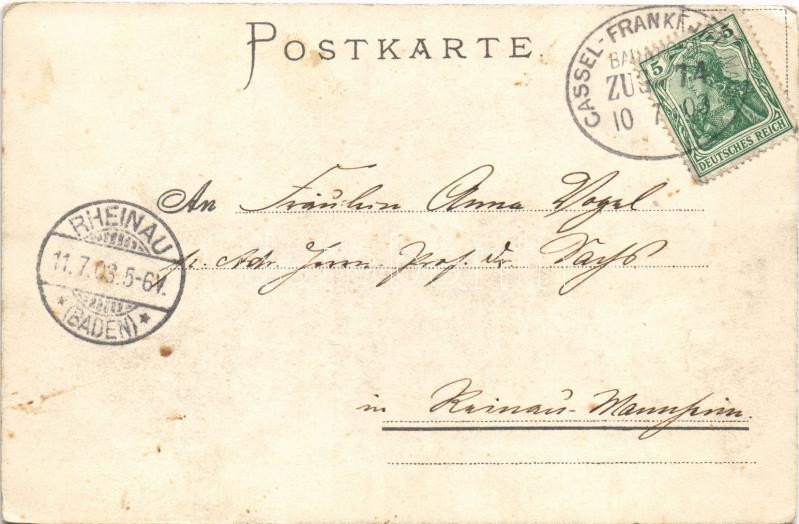 POSTKARTE.
CASSEL-FRANKF
BAHN
ZUG 74
10 7 03
5 5
DEUTSCHES REICH
An Fräulein Anna Vogel
RHEINAU
11.7.03.5-6N.
* (BADEN) *
p. Adr. Herrn Prof. Dr. Sachs
in Reinau-Mannheim.